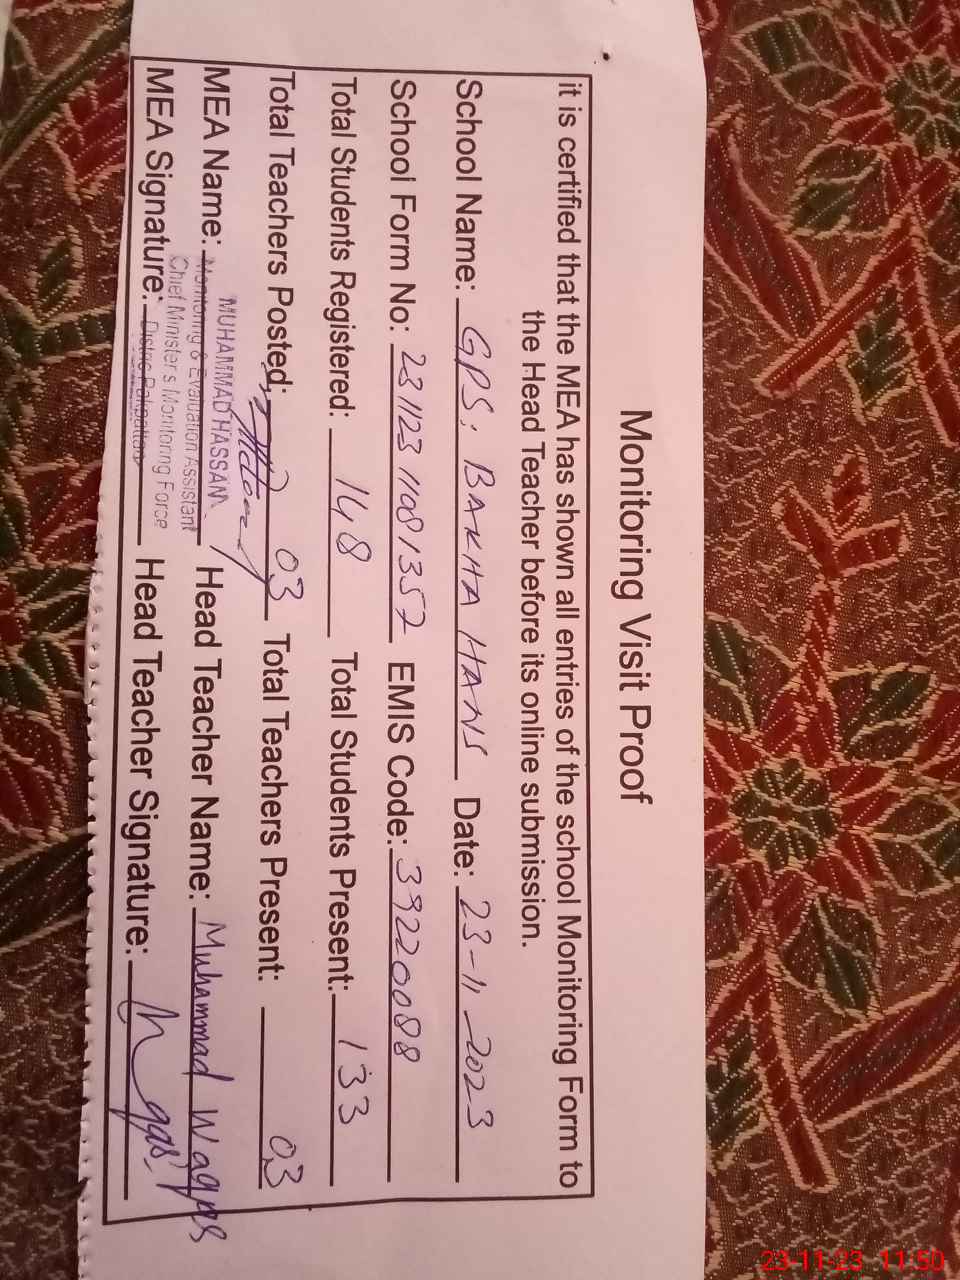 Monitoring Visit Proof
it is certified that the MEA has shown all entries of the school Monitoring Form to
the Head Teacher before its online submission.
School Name: GPS; BAKHA HANS Date: 23-11-2023
School Form No: 231123 11081357 EMIS Code: 39220088
Total Students Registered: 148 Total Students Present: 133
Total Teachers Posted: 03 Total Teachers Present: 03
MUHAMMAD HASSAN
MEA Name: Monitoring & Evaluation Assistant Head Teacher Name: Muhammad Waqas
Chief Minister's Monitoring Force
MEA Signature: Head Teacher Signature: Waqas
23-11-23 11:50